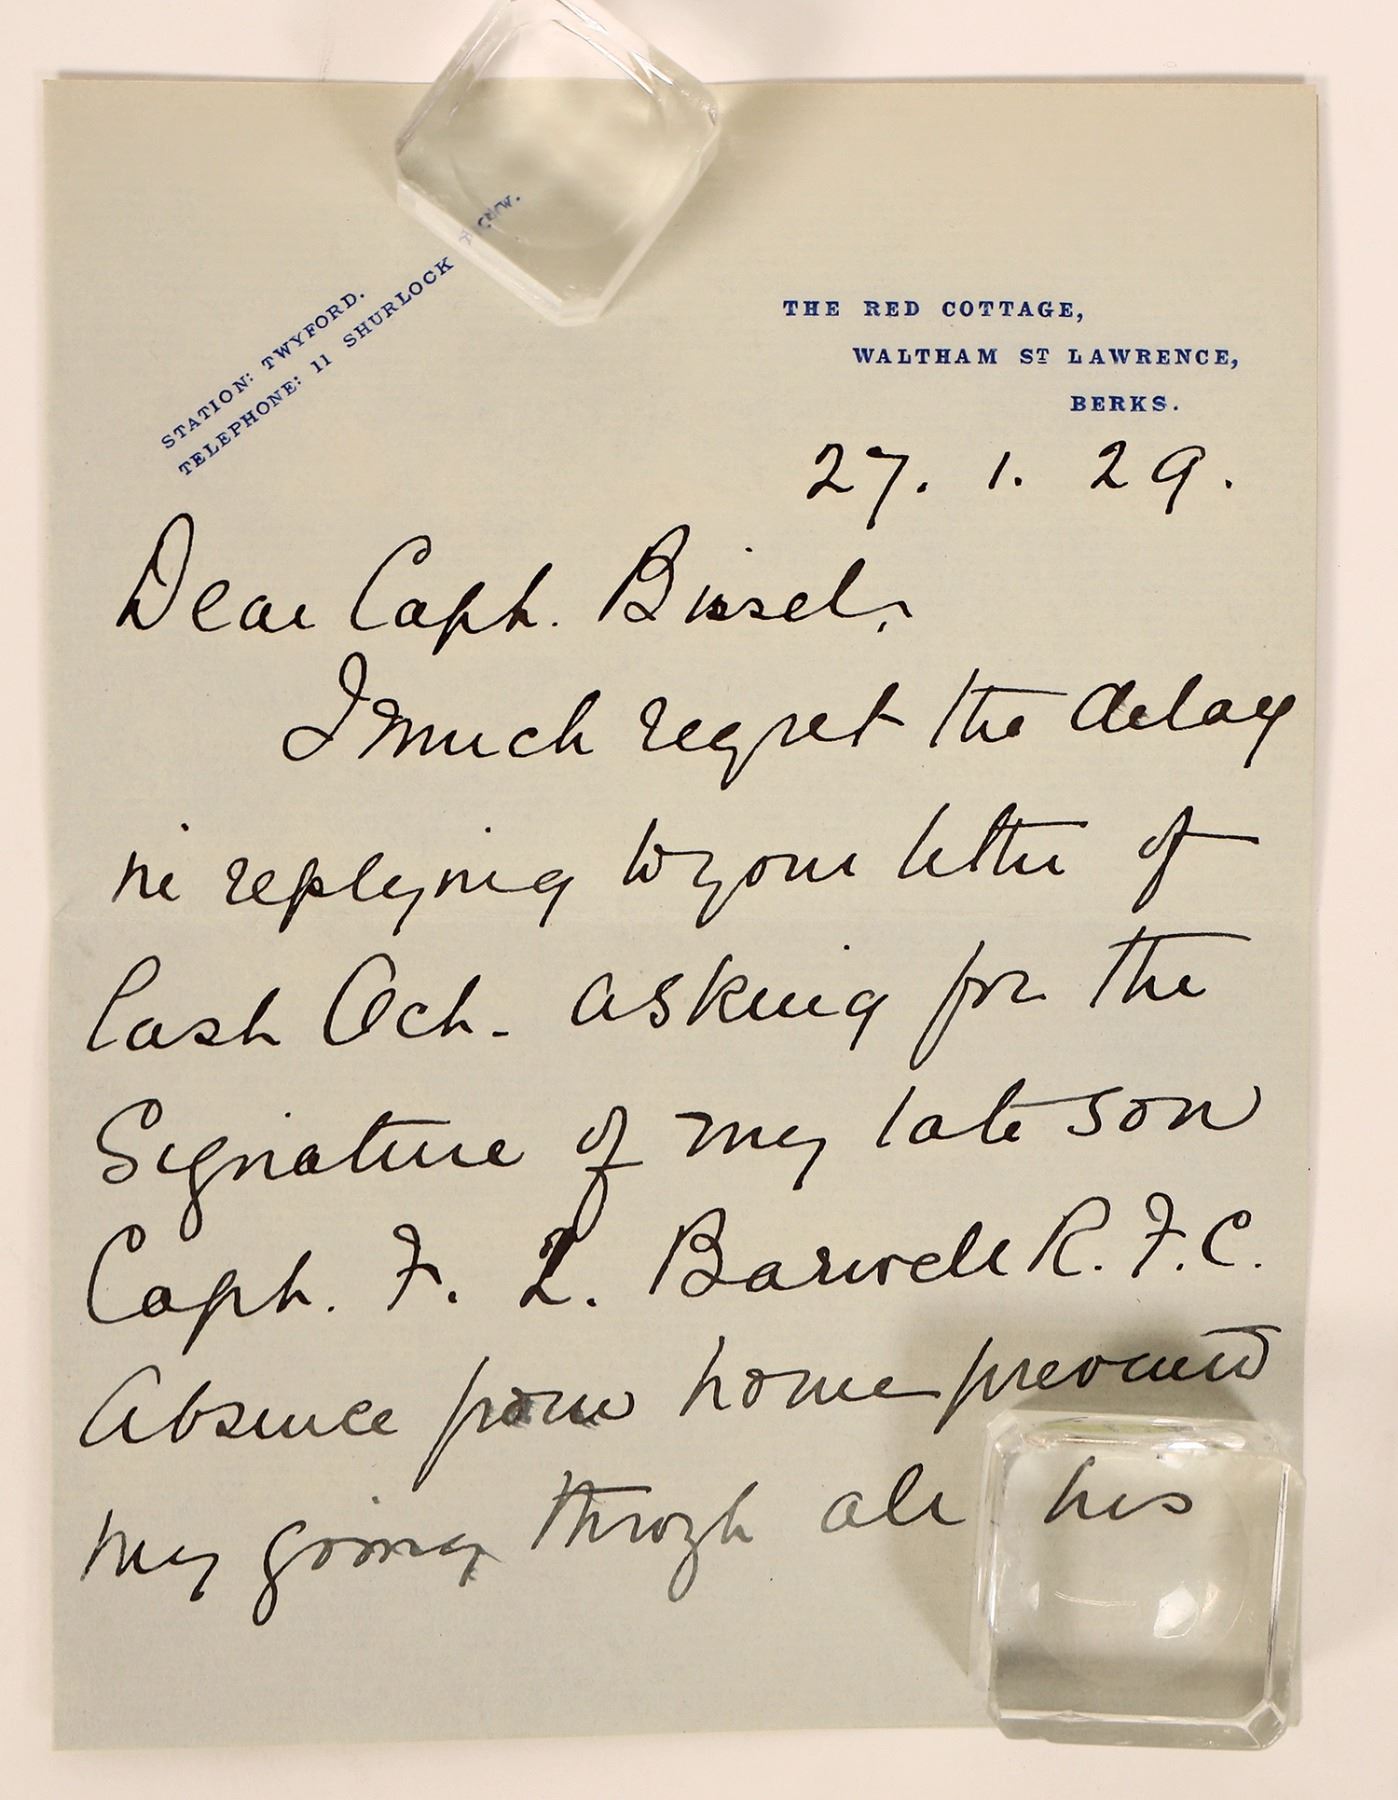 STATION: TWYFORD.
TELEPHONE: 11 SHURLOCK ROW.
THE RED COTTAGE,
WALTHAM ST LAWRENCE,
BERKS.
27. 1. 29.
Dear Capt. Bissel,
I much regret the delay
in replying to your letter of
last Oct. asking for the
Signature of my late son
Capt. F. L. Barwell R.F.C.
Absence from home prevented
my going through all his